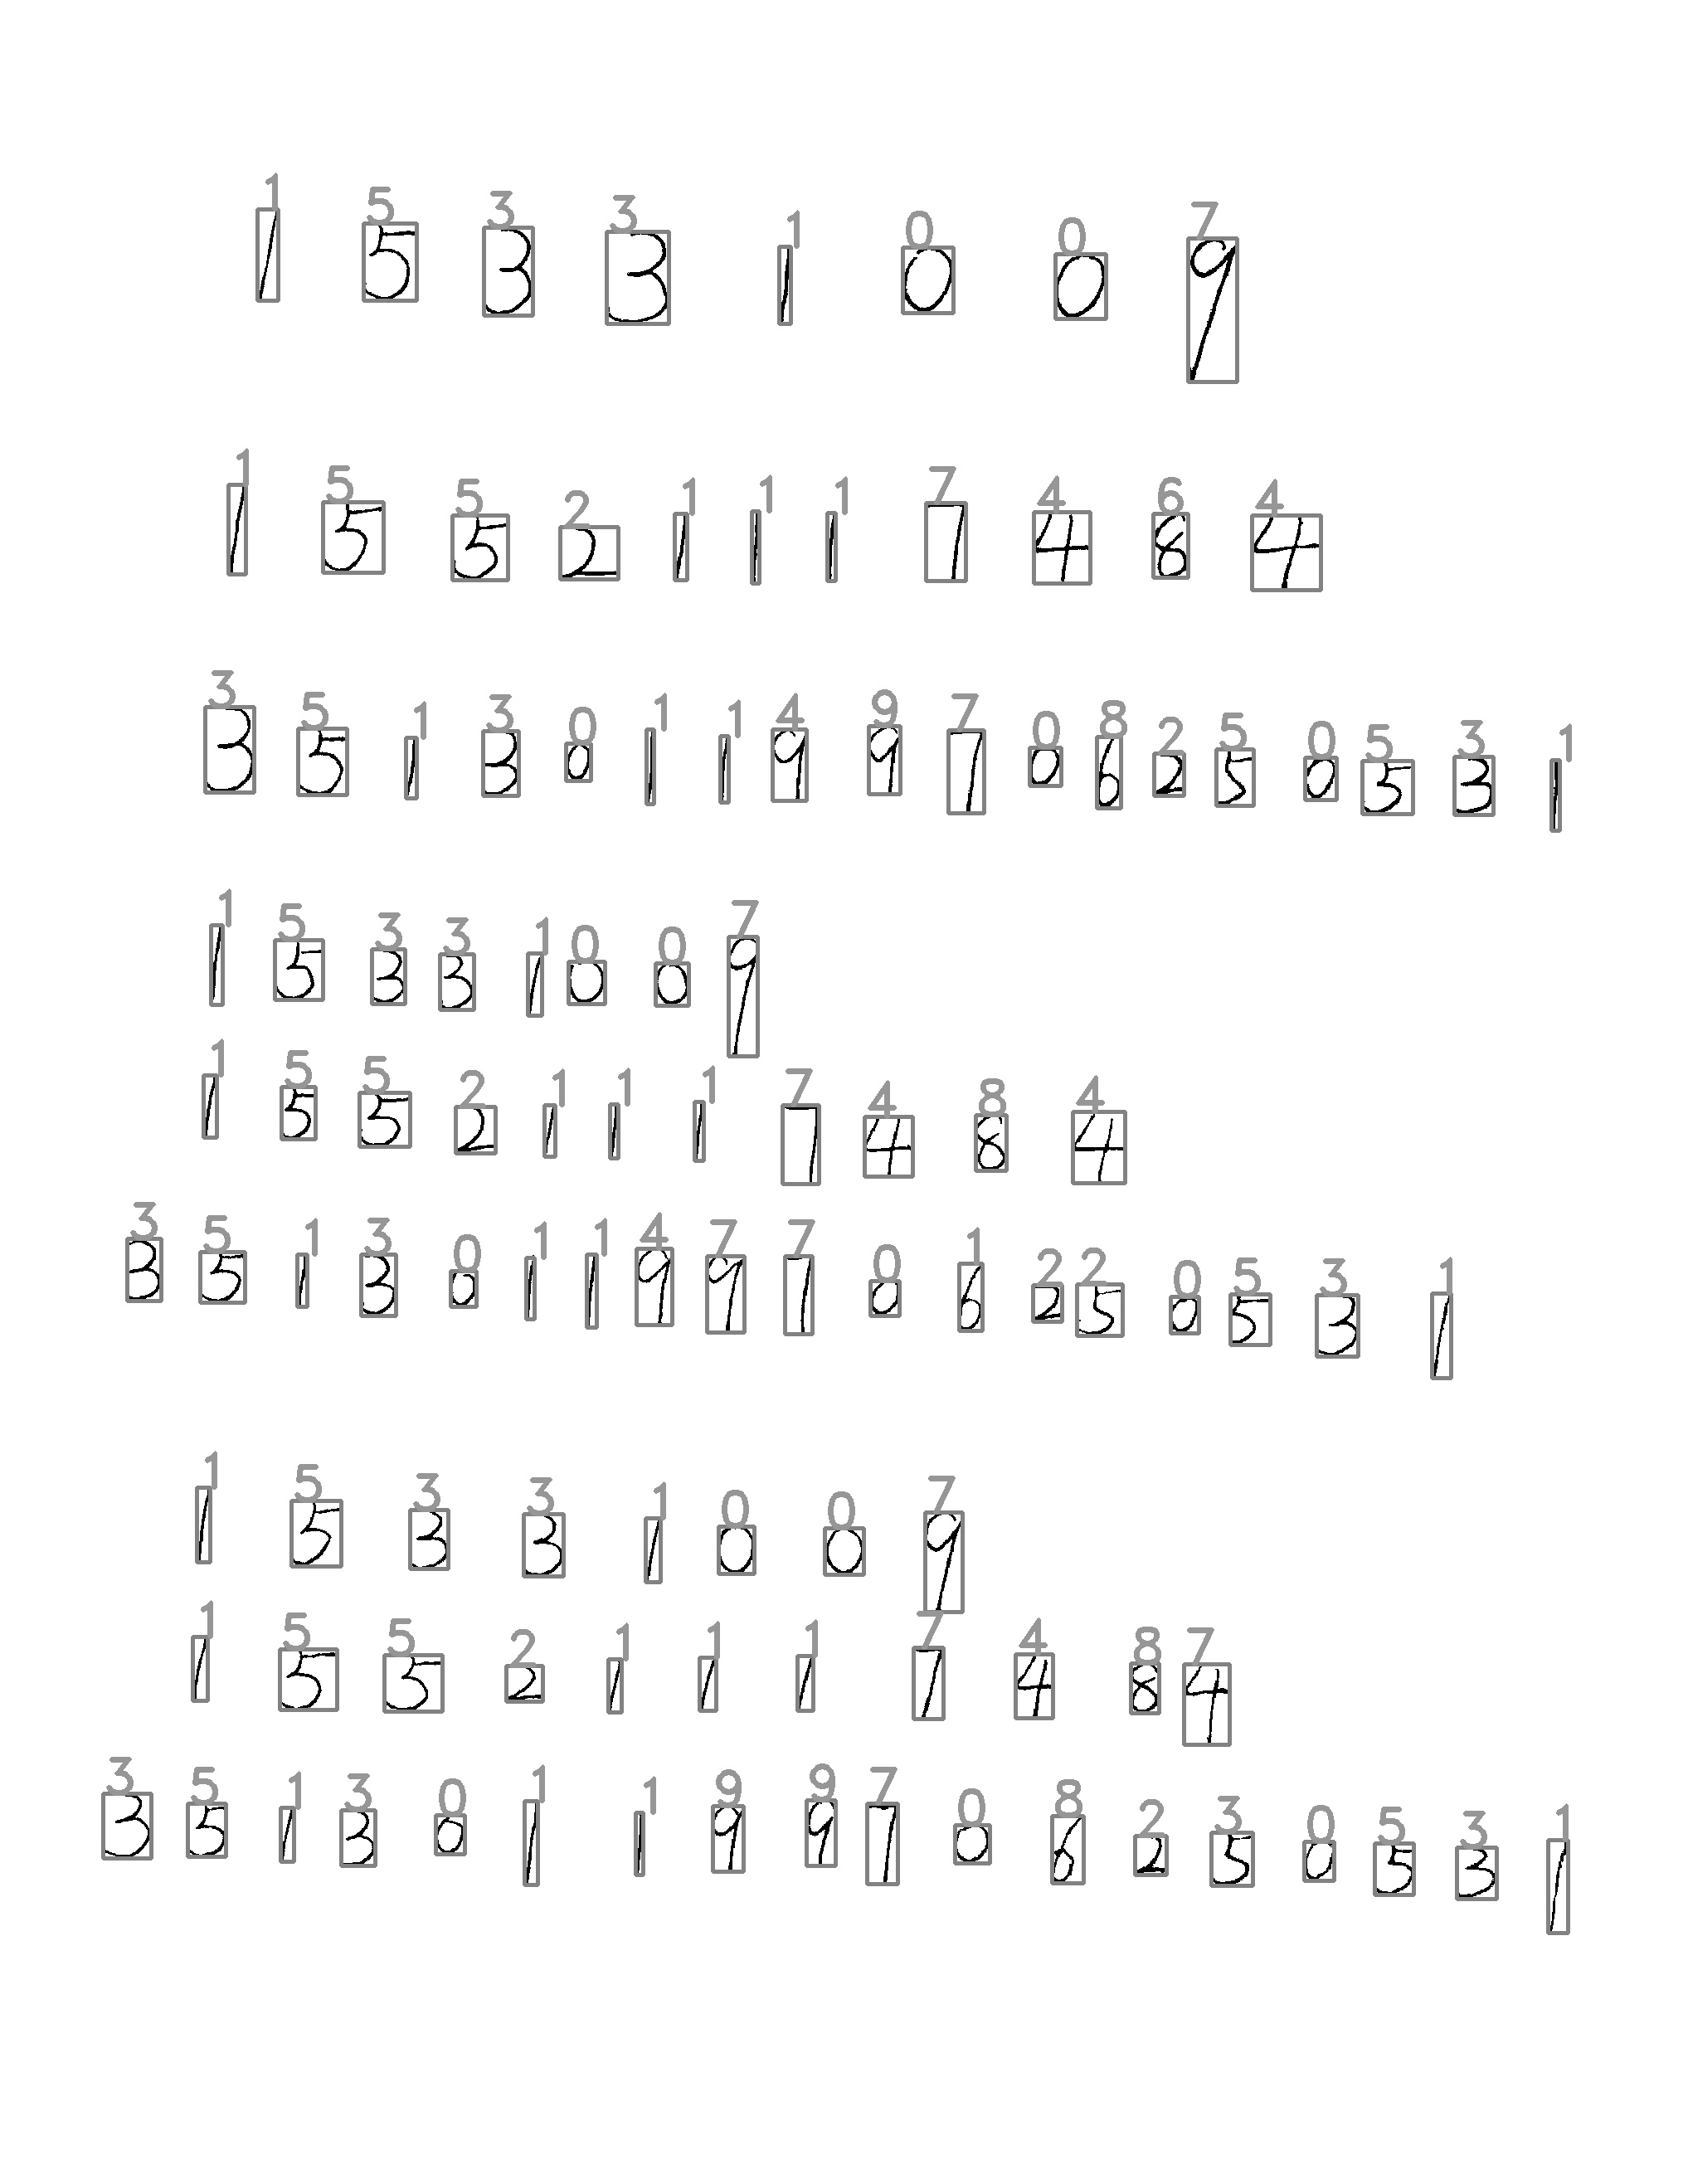 1 5 3 3 1 0 0 7
1 5 3 3 1 0 0 9
1 5 5 2 1 1 1 7 4 6 4
1 5 5 2 1 1 1 7 4 8 4
3 5 1 3 0 1 1 4 9 7 0 8 2 5 0 5 3 1
3 5 1 3 0 1 1 9 9 7 0 6 2 5 0 5 3 1
1 5 3 3 1 0 0 7
1 5 3 3 1 0 0 9
1 5 5 2 1 1 1 7 4 8 4
1 5 5 2 1 1 1 7 4 8 4
3 5 1 3 0 1 1 4 7 7 0 1 2 2 0 5 3 1
3 5 1 3 0 1 1 9 9 7 0 6 2 5 0 5 3 1
1 5 3 3 1 0 0 7
1 5 3 3 1 0 0 9
1 5 5 2 1 1 1 7 4 8 7
1 5 5 2 1 1 1 7 4 8 4
3 5 1 3 0 1 1 9 9 7 0 8 2 3 0 5 3 1
3 5 1 3 0 1 1 9 9 7 0 6 2 5 0 5 3 1